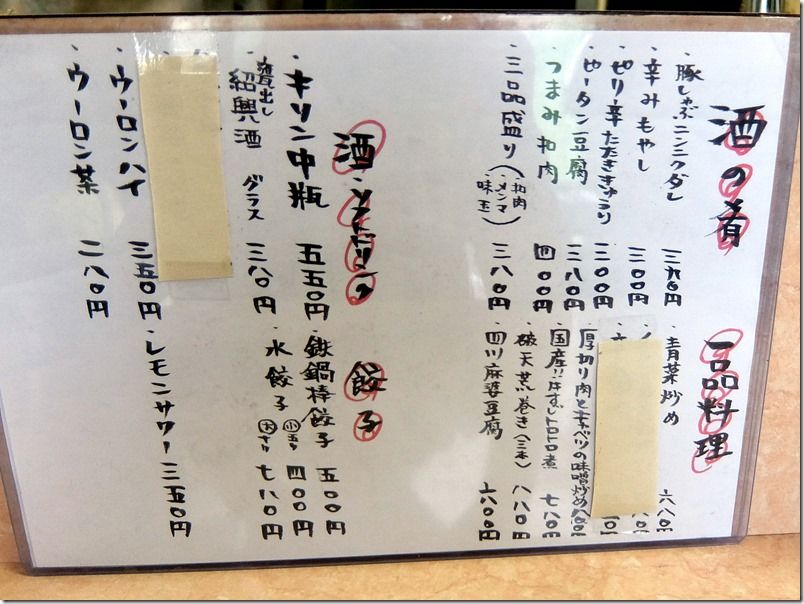 酒の肴
・豚しゃぶニンニクダレ 三八〇円
・辛みもやし 三〇〇円
・ピリ辛たたききゅうり 三〇〇円
・ピータン豆腐 三八〇円
・つまみ 和肉 四〇〇円
・三品盛り(和肉・メンマ・味玉) 三八〇円
一品料理
・青菜炒め 六八〇円
・厚切り肉とキャベツの味噌炒め 八八〇円
・国産牛はずしトロトロ煮 七八〇円
・破天荒巻き(三本) 八八〇円
・四川麻婆豆腐 六八〇円
酒・ソフトドリンク
・キリン中瓶 五五〇円
・甕出し紹興酒 グラス 三八〇円
・ウーロンハイ 三五〇円
・ウーロン茶 二八〇円
・レモンサワー 三五〇円
餃子
・鉄鍋棒餃子 五〇〇円
・水餃子 小 五ヶ 四〇〇円
大 十ヶ 七八〇円